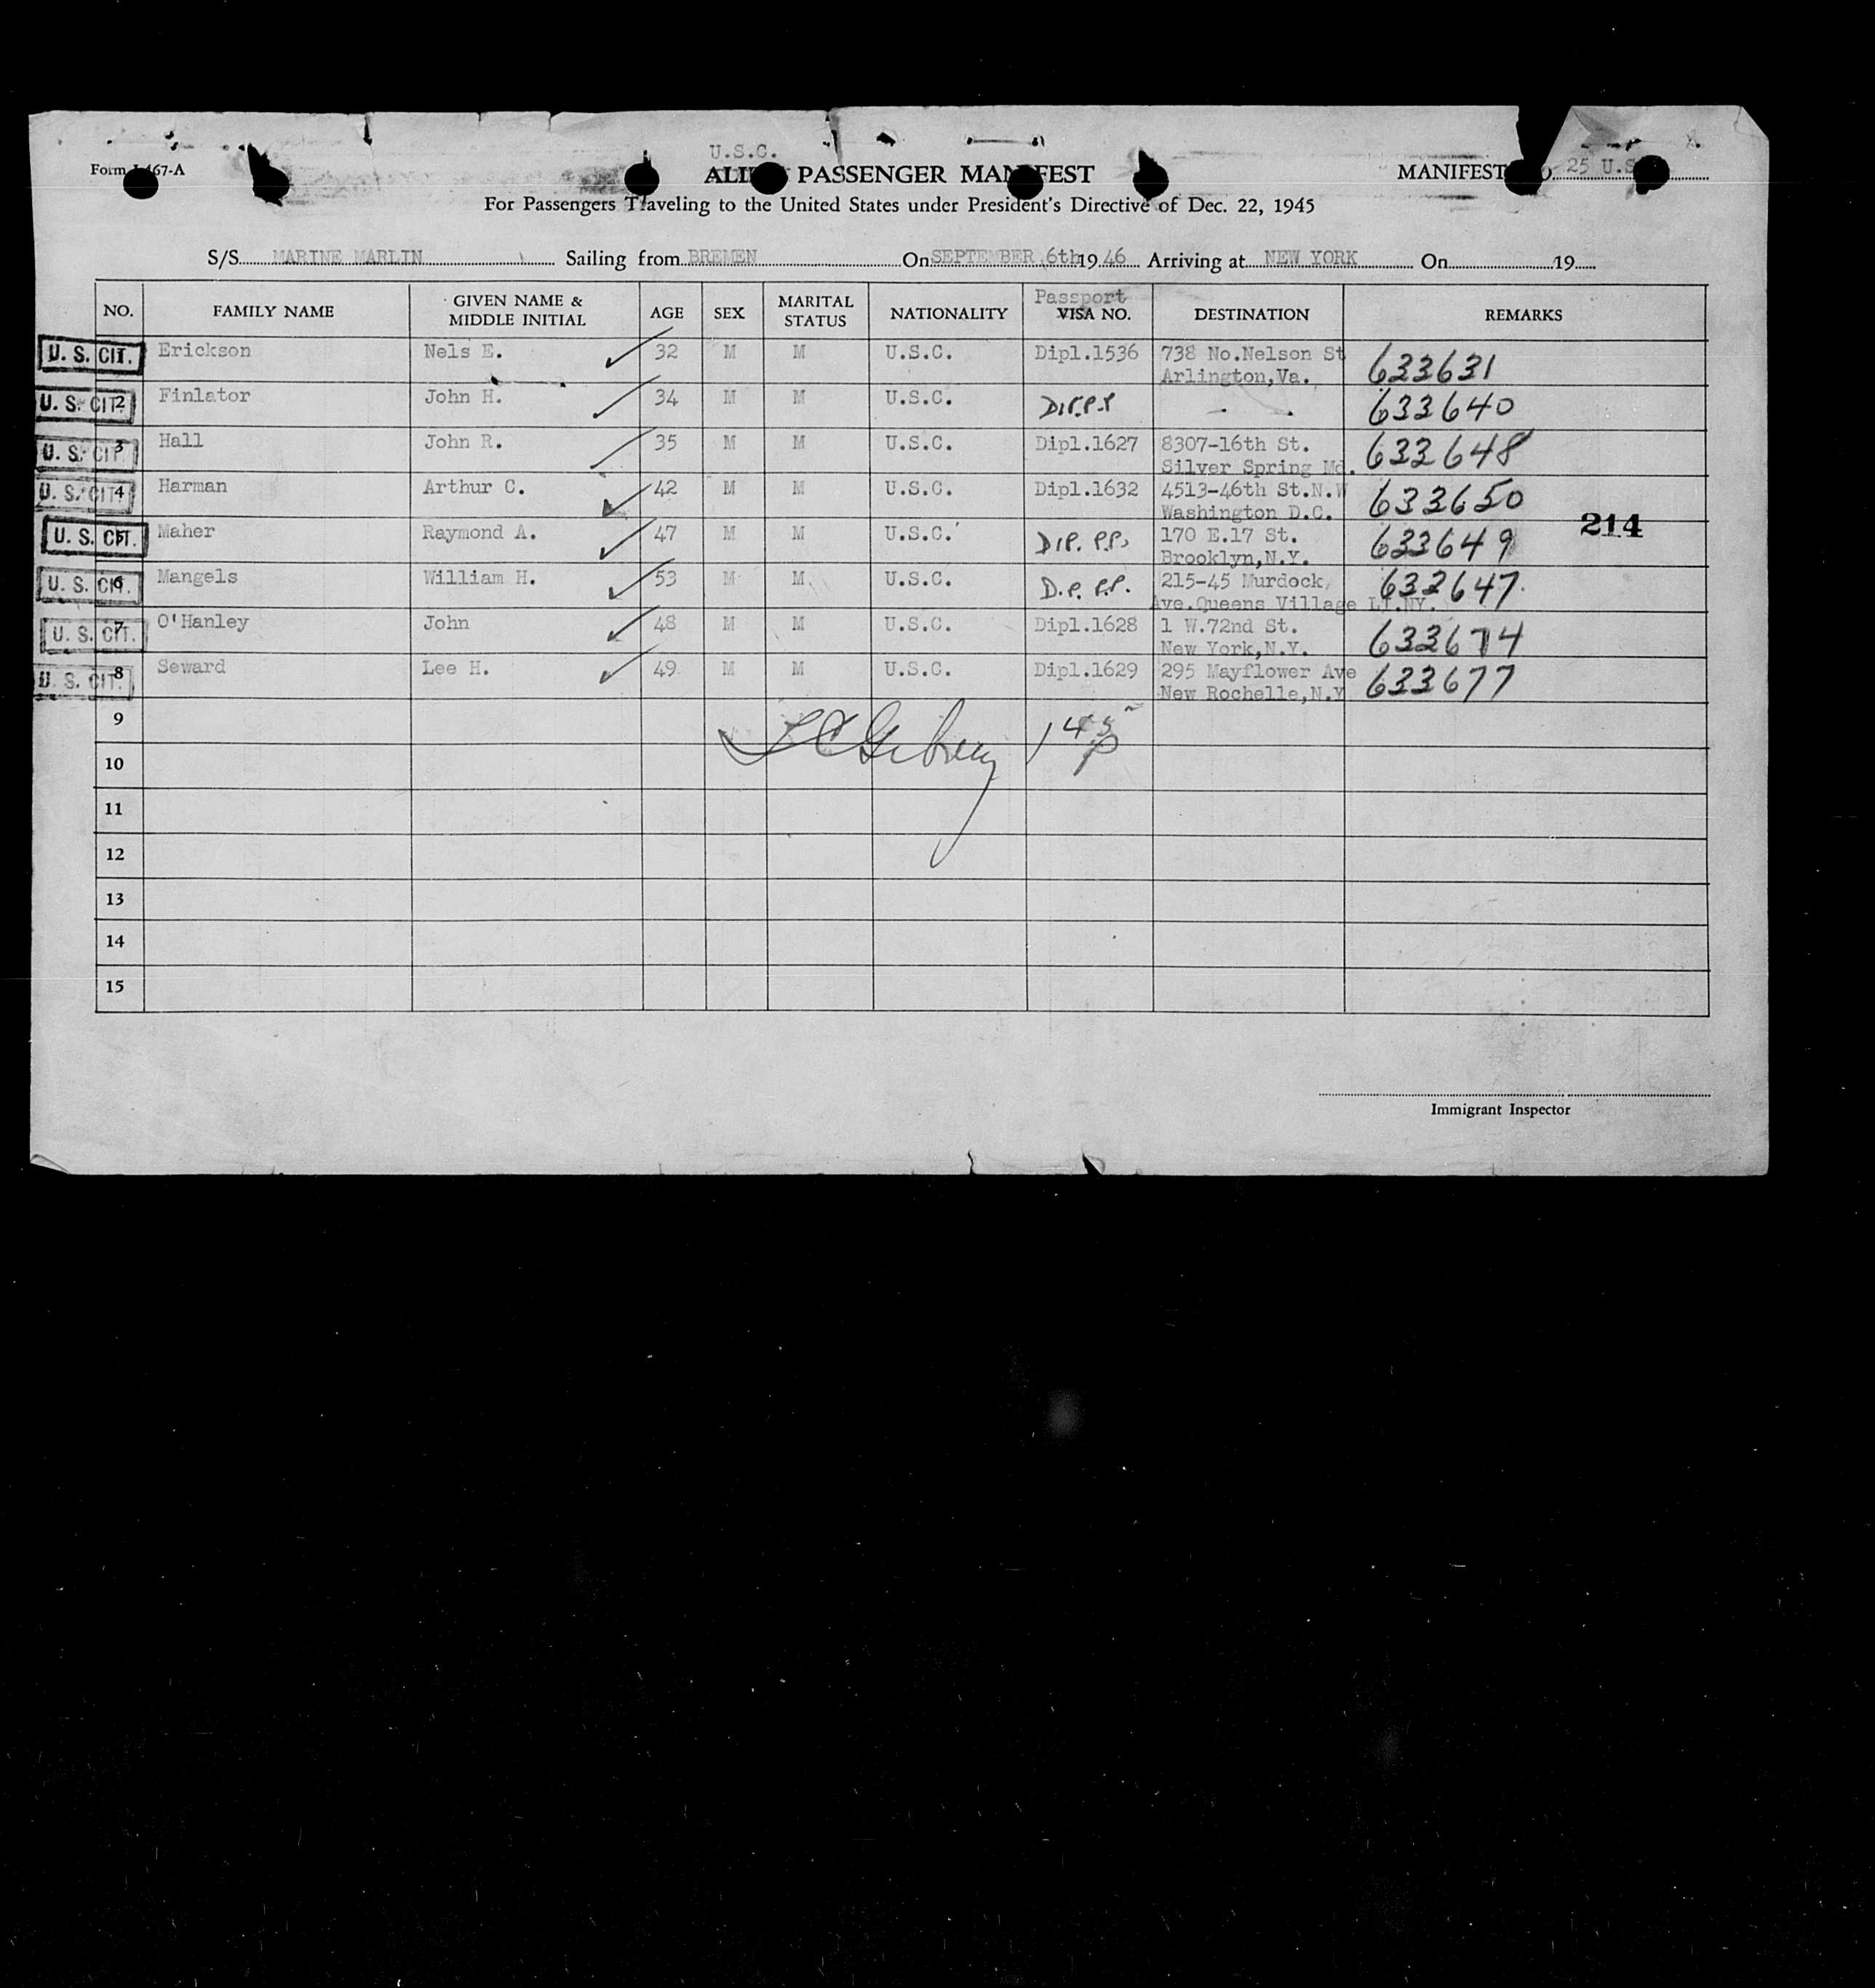 U.S.C.
Form I-467-A ALIEN PASSENGER MANIFEST MANIFEST NO. 25 U.S.
For Passengers Traveling to the United States under President's Directive of Dec. 22, 1945
S/S MARINE MARLIN Sailing from BREMEN On SEPTEMBER 6th 19 46 Arriving at NEW YORK On 19
NO. FAMILY NAME GIVEN NAME & MIDDLE INITIAL AGE SEX MARITAL STATUS NATIONALITY Passport VISA NO. DESTINATION REMARKS
U. S. CIT. 1 Erickson Nels E. 32 M M U.S.C. Dipl.1536 738 No.Nelson St 633631
Arlington,Va.
U. S. CIT. 2 Finlator John H. 34 M M U.S.C. DIP.P.P - - 633640
U. S. CIT. 3 Hall John R. 35 M M U.S.C. Dipl.1627 8307-16th St. 633648
Silver Spring Md.
U. S. CIT. 4 Harman Arthur C. 42 M M U.S.C. Dipl.1632 4513-46th St.N.W 633650
Washington D.C.
214
U. S. CIT. 5 Maher Raymond A. 47 M M U.S.C. DIP. P.P. 170 E.17 St. 633649
Brooklyn,N.Y.
U. S. CIT. 6 Mangels William H. 53 M M U.S.C. D.P. P.P. 215-45 Murdock 633647
Ave.Queens Village LI.NY.
U. S. CIT. 7 O'Hanley John 48 M M U.S.C. Dipl.1628 1 W.72nd St. 633674
New York,N.Y.
U. S. CIT. 8 Seward Lee H. 49 M M U.S.C. Dipl.1629 295 Mayflower Ave 633677
New Rochelle,N.Y
9
10
11
12
13
14
15
Immigrant Inspector